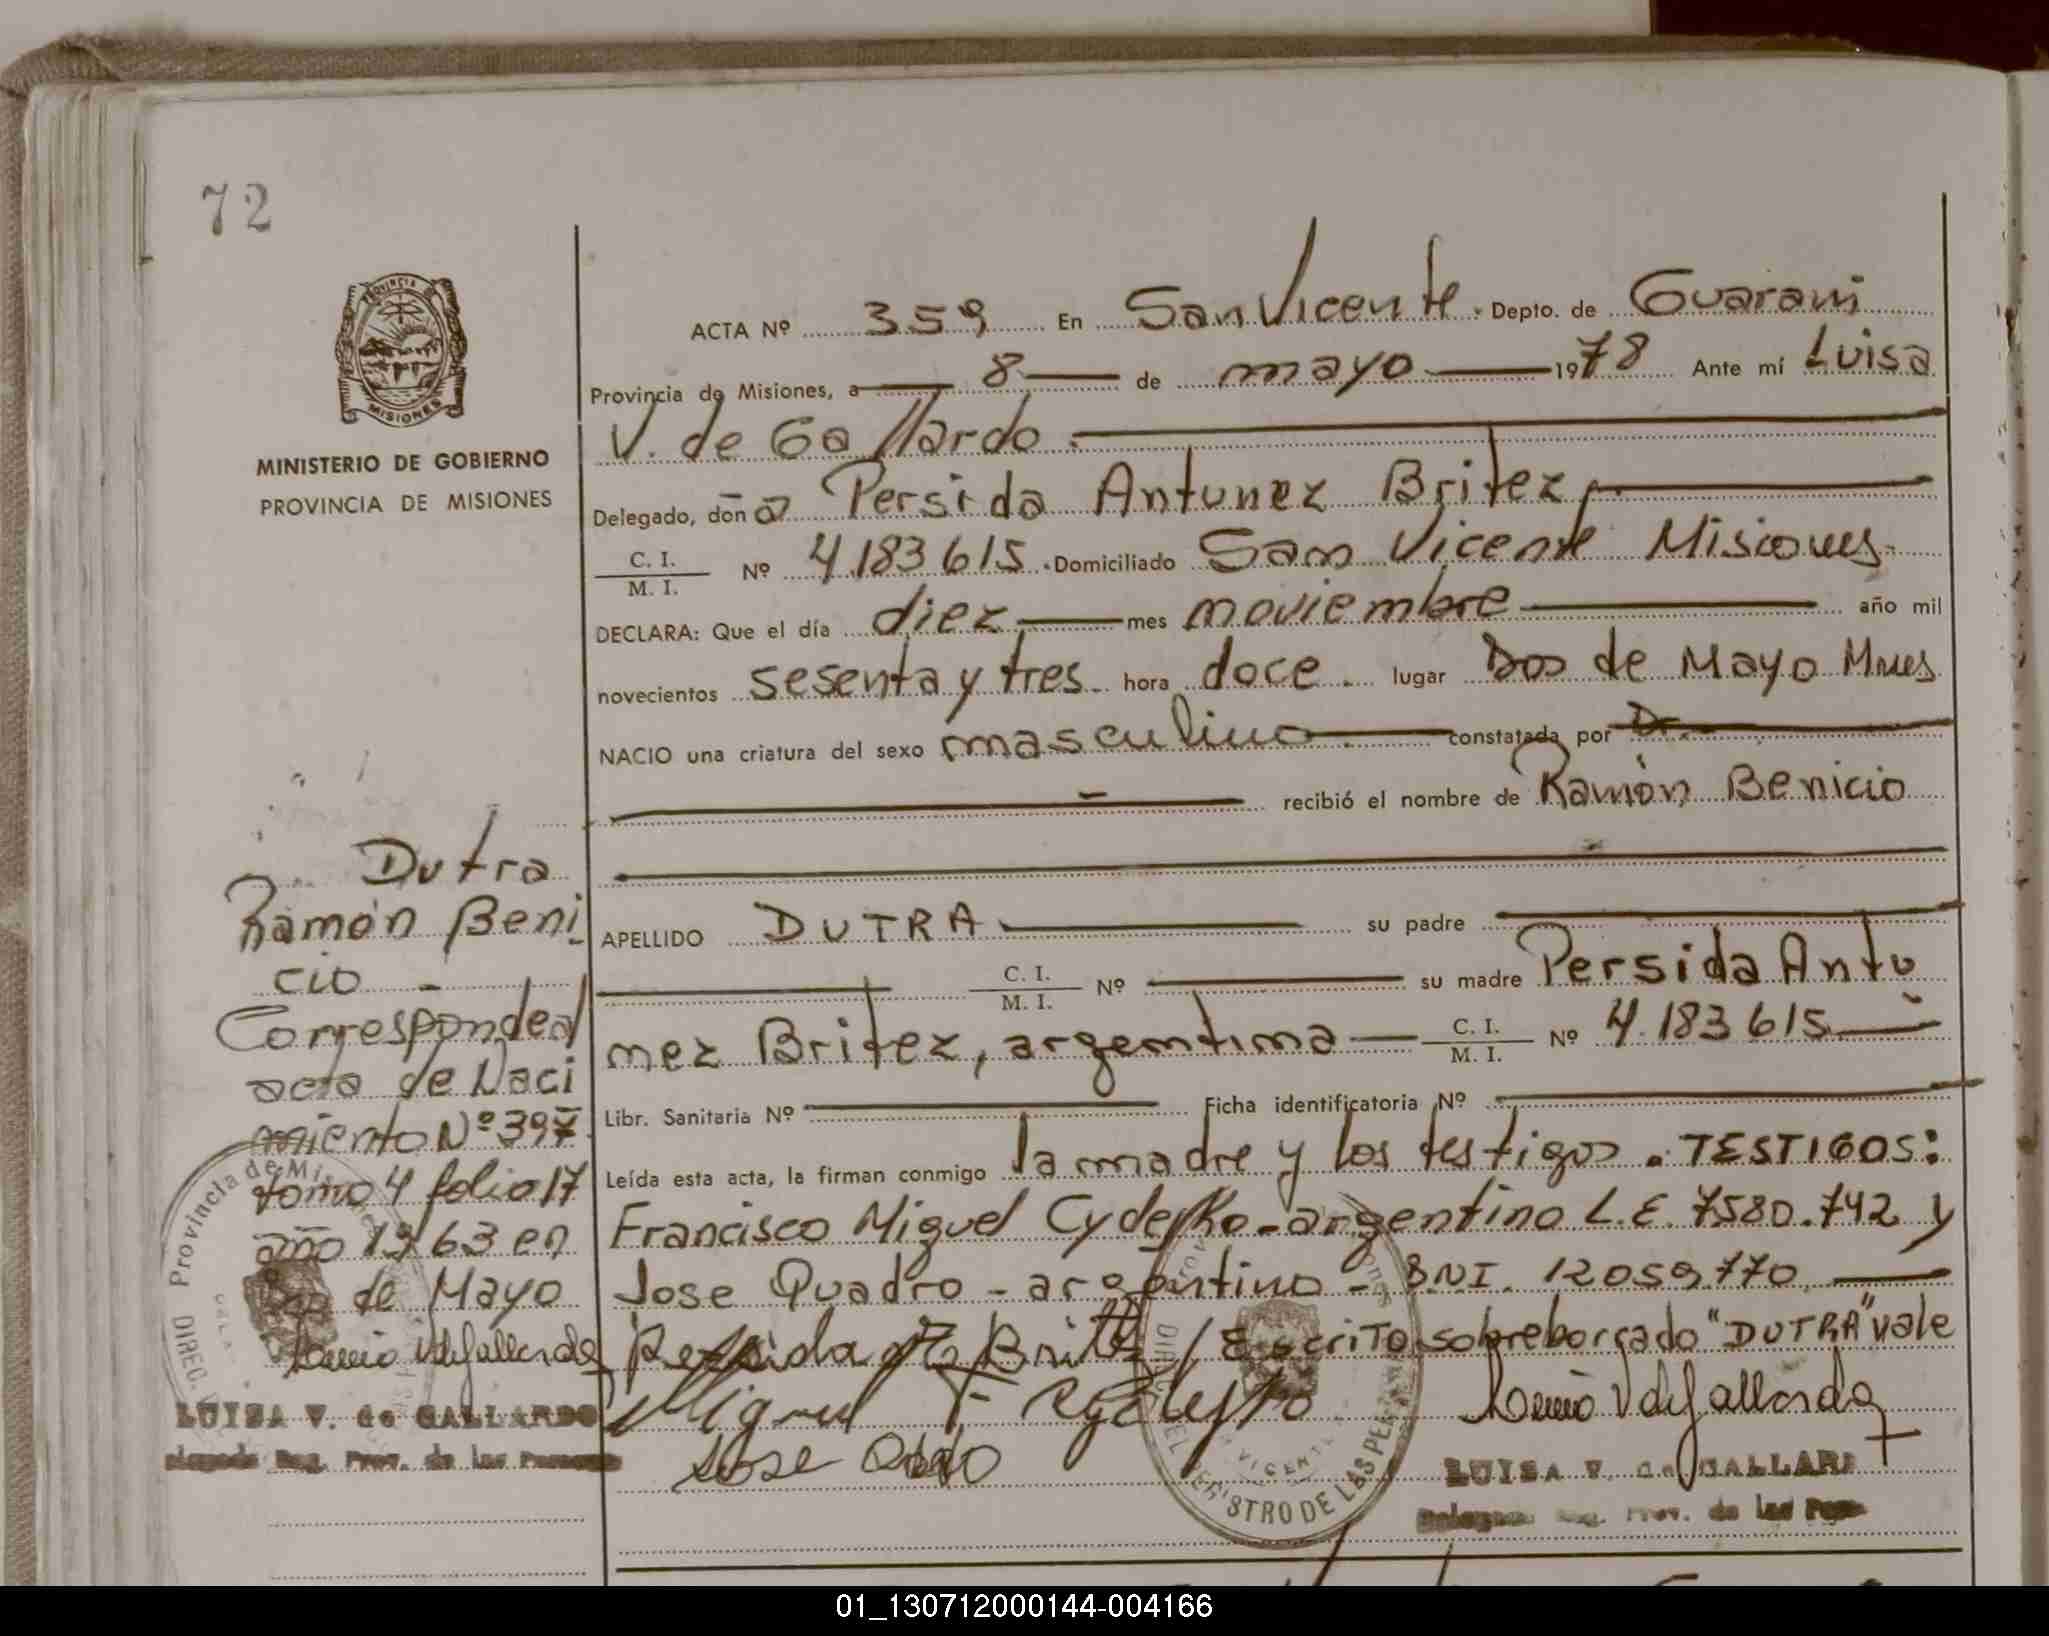 72
PROVINCIA D
MISIONES
MINISTERIO DE GOBIERNO
PROVINCIA DE MISIONES
ACTA Nº 359 En San Vicente. Depto. de Guarani
Provincia de Misiones, a 8 de mayo 1978 Ante mí Luisa
V. de Gallardo.
Delegado, doña Persida Antunez Britez
C. I. / M. I. Nº 4.183615. Domiciliado San Vicente Misiones.
DECLARA: Que el día diez mes noviembre año mil
novecientos sesenta y tres hora doce. lugar Dos de Mayo Mnes
NACIO una criatura del sexo masculino constatada por Dr.
recibió el nombre de Ramón Benicio
APELLIDO DUTRA su padre
C. I. / M. I. Nº su madre Persida Antu
nez Britez, argentina C. I. / M. I. Nº 4.183615
Libr. Sanitaria Nº Ficha identificatoria Nº
Leída esta acta, la firman conmigo la madre y los testigos. TESTIGOS:
Francisco Miguel argentino L.E. 7580.742 y
Jose Quadro - argentino - DNI. 12059770
Persida Britez Escrito sobreborrado "DUTRA" vale
Miguel F
Jose
LUISA V. de GALLAR
Delegado Reg. Prov. de las Pers
Dutra
Ramón Beni
cio -
Corresponde al
acta de Naci
miento Nº 397
tomo 4 folio 17
año 1963 en
Dos de Mayo
LUISA V. de GALLARDO
Delegado Reg. Prov. de las Personas
Provincia de Mi
DIREC.
VICENTE
REGISTRO DE LAS PER
01_130712000144-004166